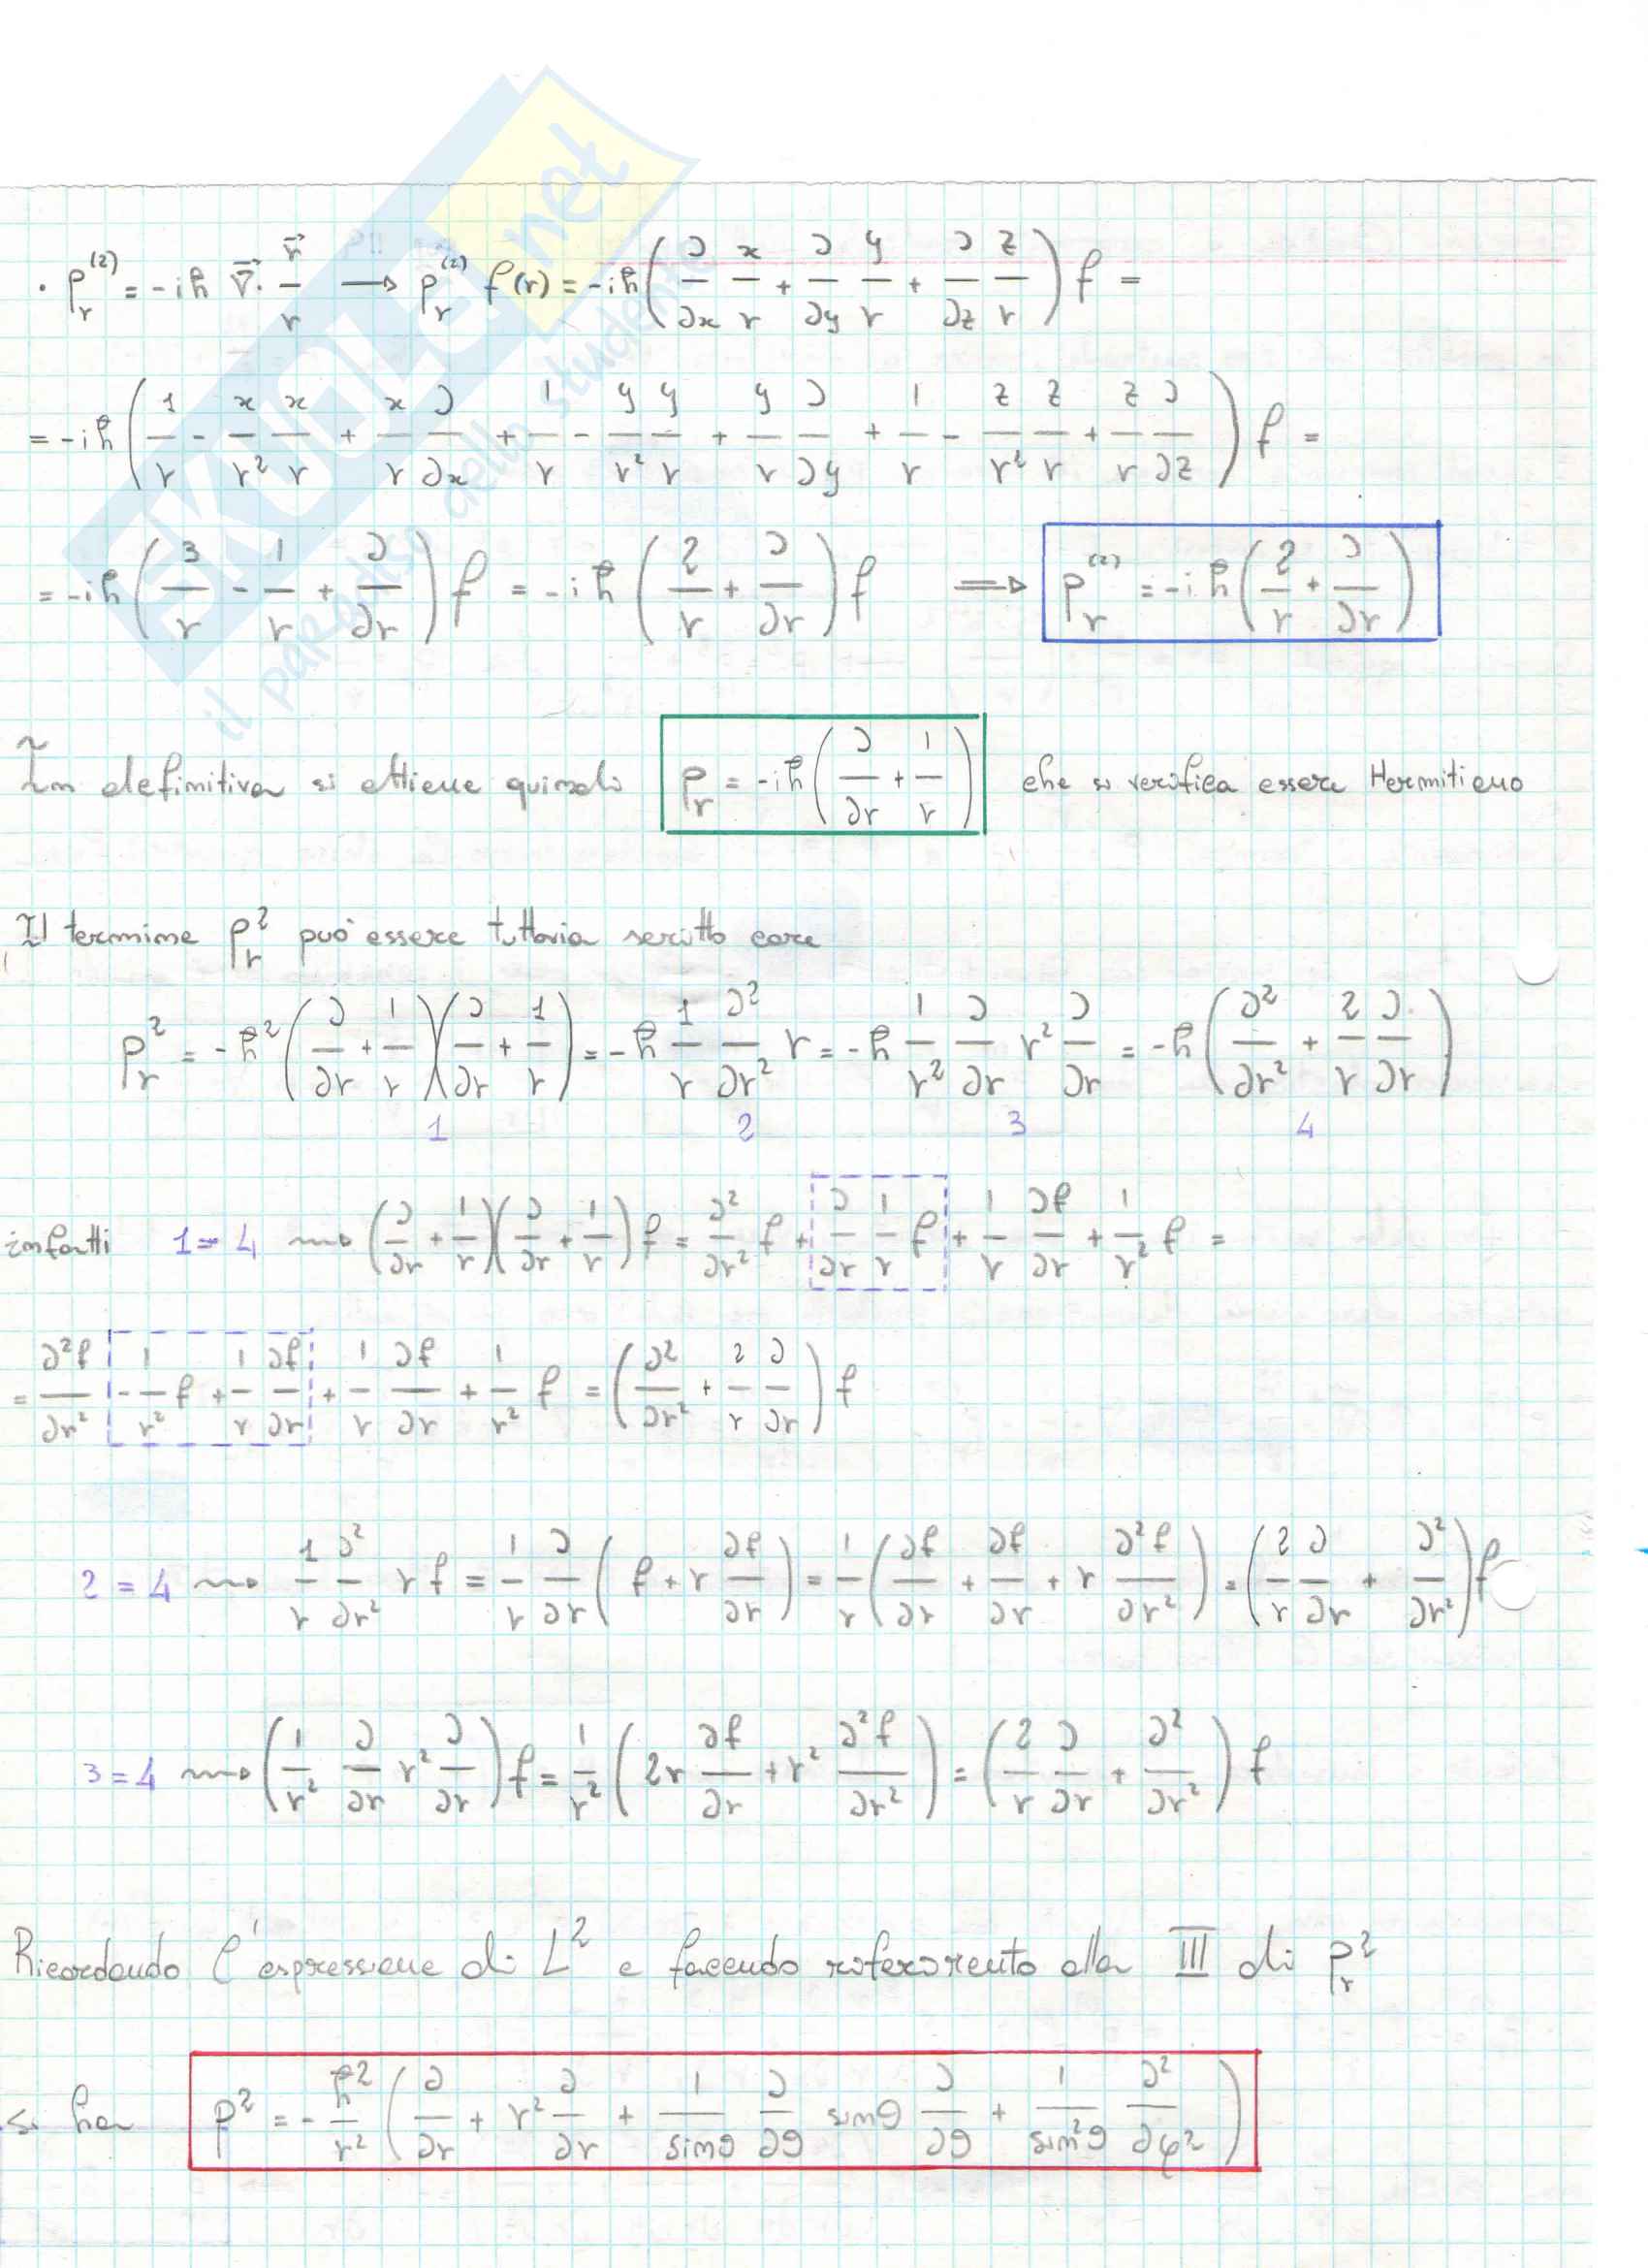 SKUOLA.net
il paradiso dello studente
· p_r^(2) = -iħ ∇⃗· r⃗/r → p_r^(2) f(r) = -iħ (∂/∂x x/r + ∂/∂y y/r + ∂/∂z z/r) f =
= -iħ (1/r - x/r² x/r + x/r ∂/∂x + 1/r - y/r² y/r + y/r ∂/∂y + 1/r - z/r² z/r + z/r ∂/∂z) f =
= -iħ (3/r - 1/r + ∂/∂r) f = -iħ (2/r + ∂/∂r) f ⟹ p_r^(2) = -iħ (2/r + ∂/∂r)
In definitiva si ottiene quindi p_r = -iħ (∂/∂r + 1/r) che si verifica essere Hermitiano
Il termine p_r² può essere tuttavia scritto come
p_r² = -ħ² (∂/∂r + 1/r)(∂/∂r + 1/r) = -ħ 1/r ∂²/∂r² r = -ħ 1/r² ∂/∂r r² ∂/∂r = -ħ (∂²/∂r² + 2/r ∂/∂r)
1 2 3 4
infatti 1=4 ⇝ (∂/∂r + 1/r)(∂/∂r + 1/r) f = ∂²/∂r² f + ∂/∂r 1/r f + 1/r ∂f/∂r + 1/r² f =
= ∂²f/∂r² - 1/r² f + 1/r ∂f/∂r + 1/r ∂f/∂r + 1/r² f = (∂²/∂r² + 2/r ∂/∂r) f
2=4 ⇝ 1/r ∂²/∂r² r f = 1/r ∂/∂r (f + r ∂f/∂r) = 1/r (∂f/∂r + ∂f/∂r + r ∂²f/∂r²) = (2/r ∂/∂r + ∂²/∂r²) f
3=4 ⇝ (1/r² ∂/∂r r² ∂/∂r) f = 1/r² (2r ∂f/∂r + r² ∂²f/∂r²) = (2/r ∂/∂r + ∂²/∂r²) f
Ricordando l'espressione di L² e facendo riferimento alla III di p_r²
si ha p² = -ħ²/r² (∂/∂r + r² ∂/∂r + 1/sinϑ ∂/∂ϑ sinϑ ∂/∂ϑ + 1/sin²ϑ ∂²/∂φ²)